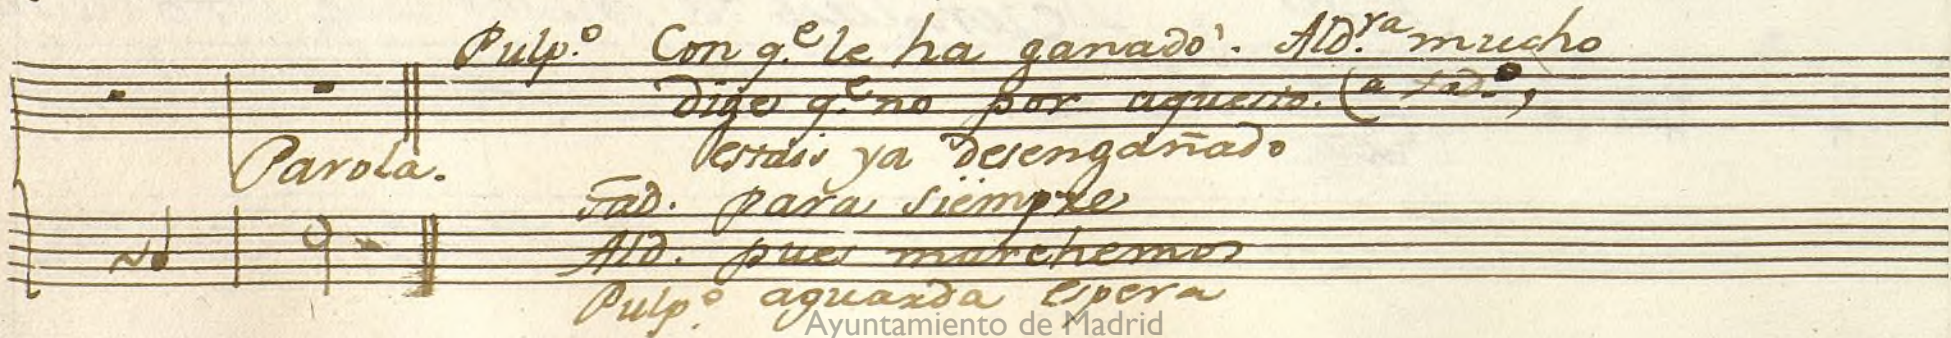 Pulp.º Con q.e le ha ganado. Ald.ra mucho
dige q.e no por aquesto. (a Tad.º)
Parola. estais ya desengañado
Tad. para siempre
Ald. pues marchemos
Pulp.º aguarda espera
Ayuntamiento de Madrid